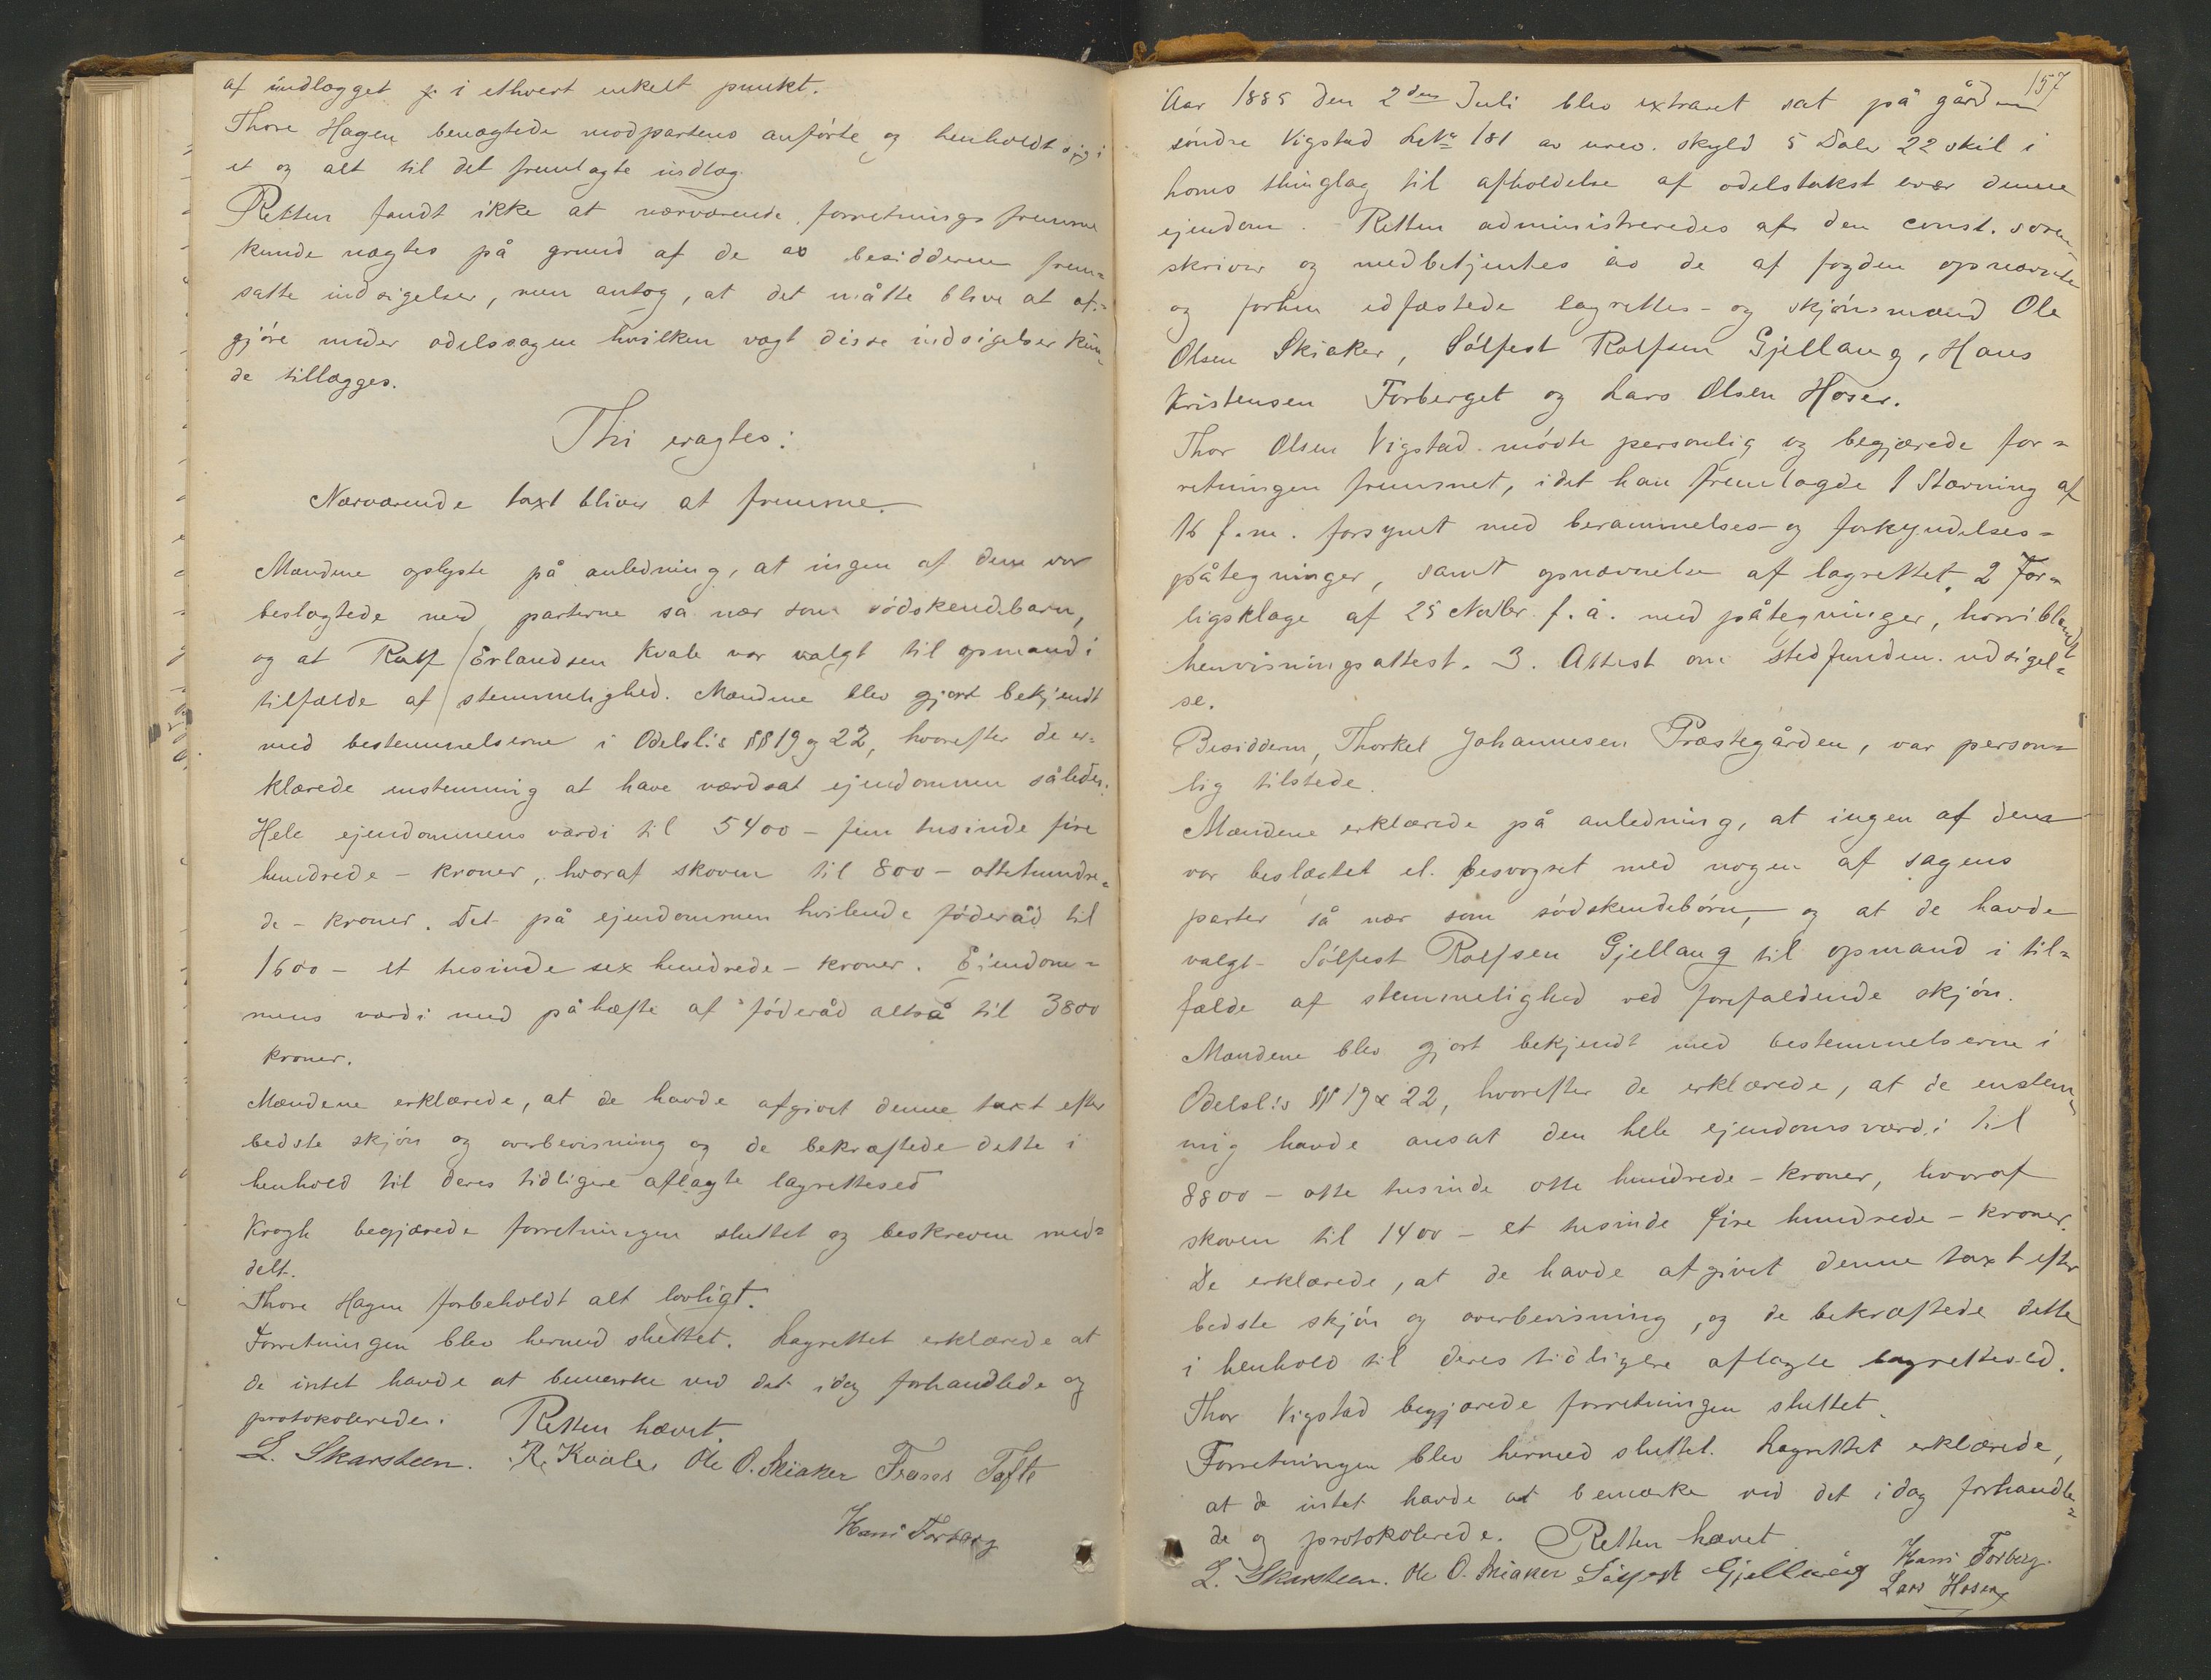 af indlægget i ethvert enkelt punkt.
Thore Hagen benægtede modpartens anførte og henholdt sig i
et og alt til det fremlagte indlæg.
Retten fandt ikke at nærværende forretnings fremme
kunde nægtes på grund af de av besidderen frem=
satte indsigelser, men antog, at det måtte blive at af=
gjøre under odelssagen hvilken vægt disse indsigelser kun=
de tillægges.
Thi eragtes:
Nærværende taxt bliver at fremme.
Mændene oplyste på anledning, at ingen af dem var
beslægtede med parterne så nær som sødskendebarn,
og at Rolf Erlandsen Kvale var valgt til opmand i
tilfælde af stemmelighed. Mændene blev gjort bekjendt
med bestemmelserne i Odelsl:s §§ 19 og 22, hvorefter de er=
klærede enstemmig at have værdsat ejendommen således:
Hele ejendommens værdi til 5400 - fem tusinde fire
hundrede - kroner, hvoraf skoven til 800 - ottehundre=
de - kroner. Det på ejendommen hvilende føderåd til
1600 - et tusinde sex hundrede - kroner. Eiendom=
mens værdi med påhæfte af føderåd altså til 3800
kroner.
Mændene erklærede, at de havde afgivet denne taxt efter
bedste skjøn og overbevisning og de bekræftede dette i
henhold til deres tidligere aflagte lagrettesed
Krogh begjærede forretningen sluttet og beskreven med=
delt.
Thore Hagen forbeholdt alt lovligt.
Forretningen blev hermed sluttet. Lagrettet erklærede at
de intet havde at bemærke ved det idag forhandlede og
protokolerede. Retten hævet.
L. Skarsteen. R. Kvale Ole O. Skiaker Frans Tofte
Hans Forberg
157
Aar 1885 den 2den Juli blev extraret sat på gården
søndre Vigstad LNr 181 av urev. skyld 5 Daler 22 skil i
Loms thinglag til afholdelse af odelstakst over denne
ejendom. Retten administreredes af den const. soren=
skriver og medbetjentes av de af fogden opnævnte
og forhen edfæstede lagrettes- og skjønsmænd Ole
Olsen Skiaker, Sølfest Rolfsen Gjellaug, Hans
Kristensen Forberget og Lars Olsen Hoser.
Thor Olsen Vigstad mødte personlig og begjærede for=
retningen fremmet, idet han fremlagde 1 Stævning af
16 f.m. forsynet med berammelses- og forkyndelses=
påtegninger, samt opnævnelse af lagrettet, 2 For=
ligsklage af 25 Novbr. f.å. med påtegninger, hvoriblandt
henvisningsattest. 3. Attest om stedfunden udsigel=
se.
Besidderen, Thorkel Johannesen Præstegården, var person=
lig tilstede.
Mændene erklærede på anledning, at ingen af dem
var beslægtet el. besvogret med nogen af sagens
parter så nær som sødskendebørn, og at de havde
valgt Sølfest Rolfsen Gjellaug til opmand i til=
fælde af stemmelighed ved forefaldende skjøn.
Mændene blev gjort bekjendt med bestemmelserne i
Odelsl:s §§ 19 & 22, hvorefter de erklærede, at de enstem=
mig havde ansat den hele ejendoms værdi til
8800 - otte tusinde otte hundrede - kroner, hvoraf
skoven til 1400 - et tusinde fire hundrede - kroner.
De erklærede, at de havde afgivet denne taxt efter
bedste skjøn og overbevisning, og de bekræftede dette
i henhold til deres tidligere aflagte lagrettes-ed.
Thor Vigstad begjærede forretningen sluttet.
Forretningen blev hermed sluttet. Lagrettet erklærede,
at de intet havde at bemærke ved det idag forhandle=
de og protokolerede. Retten hævet
L. Skarsteen. Ole O. Skiaker Sølfest Gjellaug Hans Forberg.
Lars Hoser